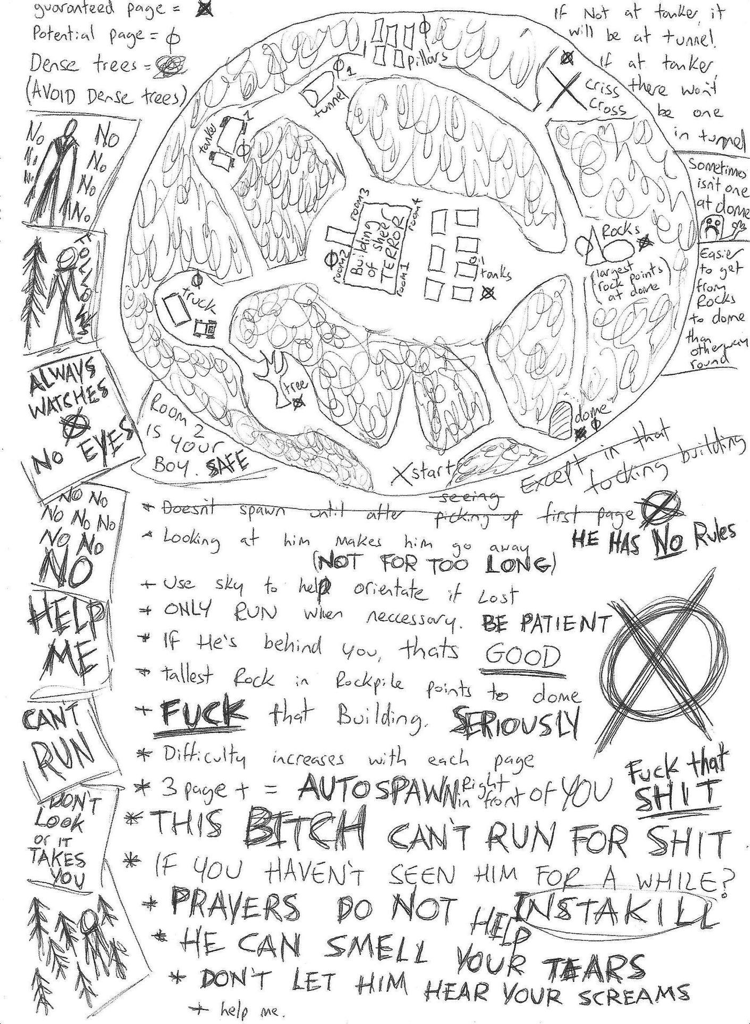 guaranteed page =
Potential page =
Dense trees =
(AVOID Dense trees)
If Not at tanker, it
will be at tunnel.
If at tanker
there won't
be one
in tunnel
pillars
tunnel
1
tanker
1
criss
cross
Sometimes
isn't one
at dome
Easier
to get
from
Rocks
to dome
than
otherway
round
Rocks
(largest
rock points
at dome)
room3
room4
room2
room1
Building
of sheer
TERROR
oil
tanks
truck
tree
dome
X start
Room 2
is your
Boy. SAFE
No No
No No
No No
No No
ALWAYS
WATCHES
NO EYES
No No
No No No
No No
NO
HELP
ME
CAN'T
RUN
DON'T
LOOK
or it
TAKES
YOU
Except in that
fucking building
seeing
* Doesn't spawn until after picking up first page
HE HAS NO Rules
* Looking at him makes him go away
(NOT FOR TOO LONG)
+ Use sky to help orientate if Lost
* ONLY RUN when neccessary. BE PATIENT
* If He's behind you, thats GOOD
* tallest Rock in Rockpile points to dome
+ FUCK that Building. SERIOUSLY
* Difficulty increases with each page
* 3 page + = AUTOSPAWN Right in front of YOU
Fuck that
SHIT
* THIS BITCH CAN'T RUN FOR SHIT
* IF YOU HAVEN'T SEEN HIM FOR A WHILE?
INSTAKILL
* PRAYERS DO NOT HELP
* HE CAN SMELL YOUR TEARS
* DON'T LET HIM HEAR YOUR SCREAMS
+ help me.